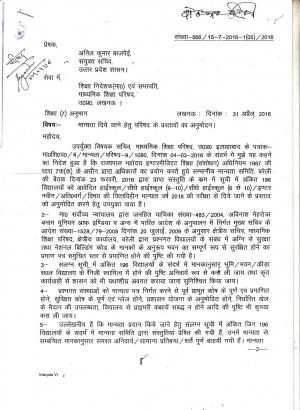 संख्या-566/15-7-2016-1(05)/2016
प्रेषक,
अनिल कुमार बाजपेई,
संयुक्त सचिव,
उत्तर प्रदेश शासन।
सेवा में,
शिक्षा निदेशक(मा0) एवं सभापति,
माध्यमिक शिक्षा परिषद,
उ0प्र0, लखनऊ।
शिक्षा (7) अनुभाग लखनऊ : दिनांक : 31 अप्रैल, 2016
विषय:- मान्यता दिये जाने हेतु परिषद के प्रस्तावों का अनुमोदन।
महोदय,
उपर्युक्त विषयक सचिव, माध्यमिक शिक्षा परिषद, उ0प्र0 इलाहाबाद के पत्रांक-
मा0शि0प0/ /मान्यता/परिषद-9/1080, दिनांक 04-03-2016 के संदर्भ में मुझे यह कहने
का निदेश हुआ है कि राज्यपाल महोदय इण्टरमीडिएट शिक्षा (संशोधन) अधिनियम 1987 की
धारा 7(क) के अधीन प्राप्त अधिकारों का प्रयोग करते हुये मान्यता समिति, बरेली
की बैठक दिनांक 23 फरवरी, 2016 द्वारा प्राप्त संस्तुति के क्रम में सूची में अंकित 196
विद्यालयों को आवेदित हाईस्कूल/सीधे हाईस्कूल (9-10)/सीधे हाईस्कूल (6-10)/इण्टर
नवीन/अतिरिक्त/विषय की वित्तविहीन मान्यता वर्ष 2018 की परीक्षा से दिये जाने के प्रस्ताव
को अनुमोदित करने हेतु उपयुक्त पाया है।
2- मा0 सर्वोच्च न्यायालय द्वारा जनहित याचिका संख्या-483/2004, अविनाश मेहरोत्रा
बनाम यूनियन आफ इण्डिया व अन्य में पारित आदेश के अनुपालन में निर्गत शासन के
आदेश संख्या-1528/79-2008 दिनांक 20 जुलाई, 2009 के अनुसार क्षेत्रीय सचिव, माध्यमिक
शिक्षा परिषद, क्षेत्रीय कार्यालय, बरेली द्वारा प्रश्नगत विद्यालयों के संबंध में अग्नि से सुरक्षा
तथा नेशनल बिल्डिंग कोड के मानकों के अनुरूप भवन का सम्पूर्ण रूप से सुरक्षित होने का
प्रमाण पत्र समुचित स्तर से प्रमाणित होने की पुष्टि की गयी है।
3- संलग्न सूची, में अंकित 196 विद्यालयों के संदर्भ में मानकानुसार भूमि/भवन/क्रीड़ा
स्थल विद्यालय के निजी स्वामित्व में होने की पुष्टि अनिवार्य रूप से करा ली जाय तथा कृत
कार्यवाही से शासन को भी यथाशीघ्र अवगत कराया जाना सुनिश्चित किया जाय।
4- प्रश्नगत संस्थाओं को मान्यता पत्र निर्गत करने से पूर्व प्राभूत कोष के पूर्ण एवं प्रमाणित
होने, सुरक्षित कोष के पूर्ण एवं प्लेज होने, प्रशासन योजना के अनुमोदित होने, निर्धारित खेल
के मैदान की उपलब्धता, विद्यालय से प्राइमरी कक्षायें सम्बद्ध न होने आदि की पुष्टि भी कृपया
करा ली जाय।
5- उल्लेखनीय है कि मान्यता प्रदान किये जाने हेतु संलग्न सूची में अंकित जिन 196
विद्यालयों के संदर्भ में मान्यता समिति द्वारा संस्तुतियां प्रेषित की गयी हैं, उनमें मान्यता से
सम्बन्धित मानकानुसार समस्त अनिवार्य/सामान्य प्रतिबन्ध/शर्तें पूर्ण बतायी गयी हैं। मान्यता
---2---
Manyata VI